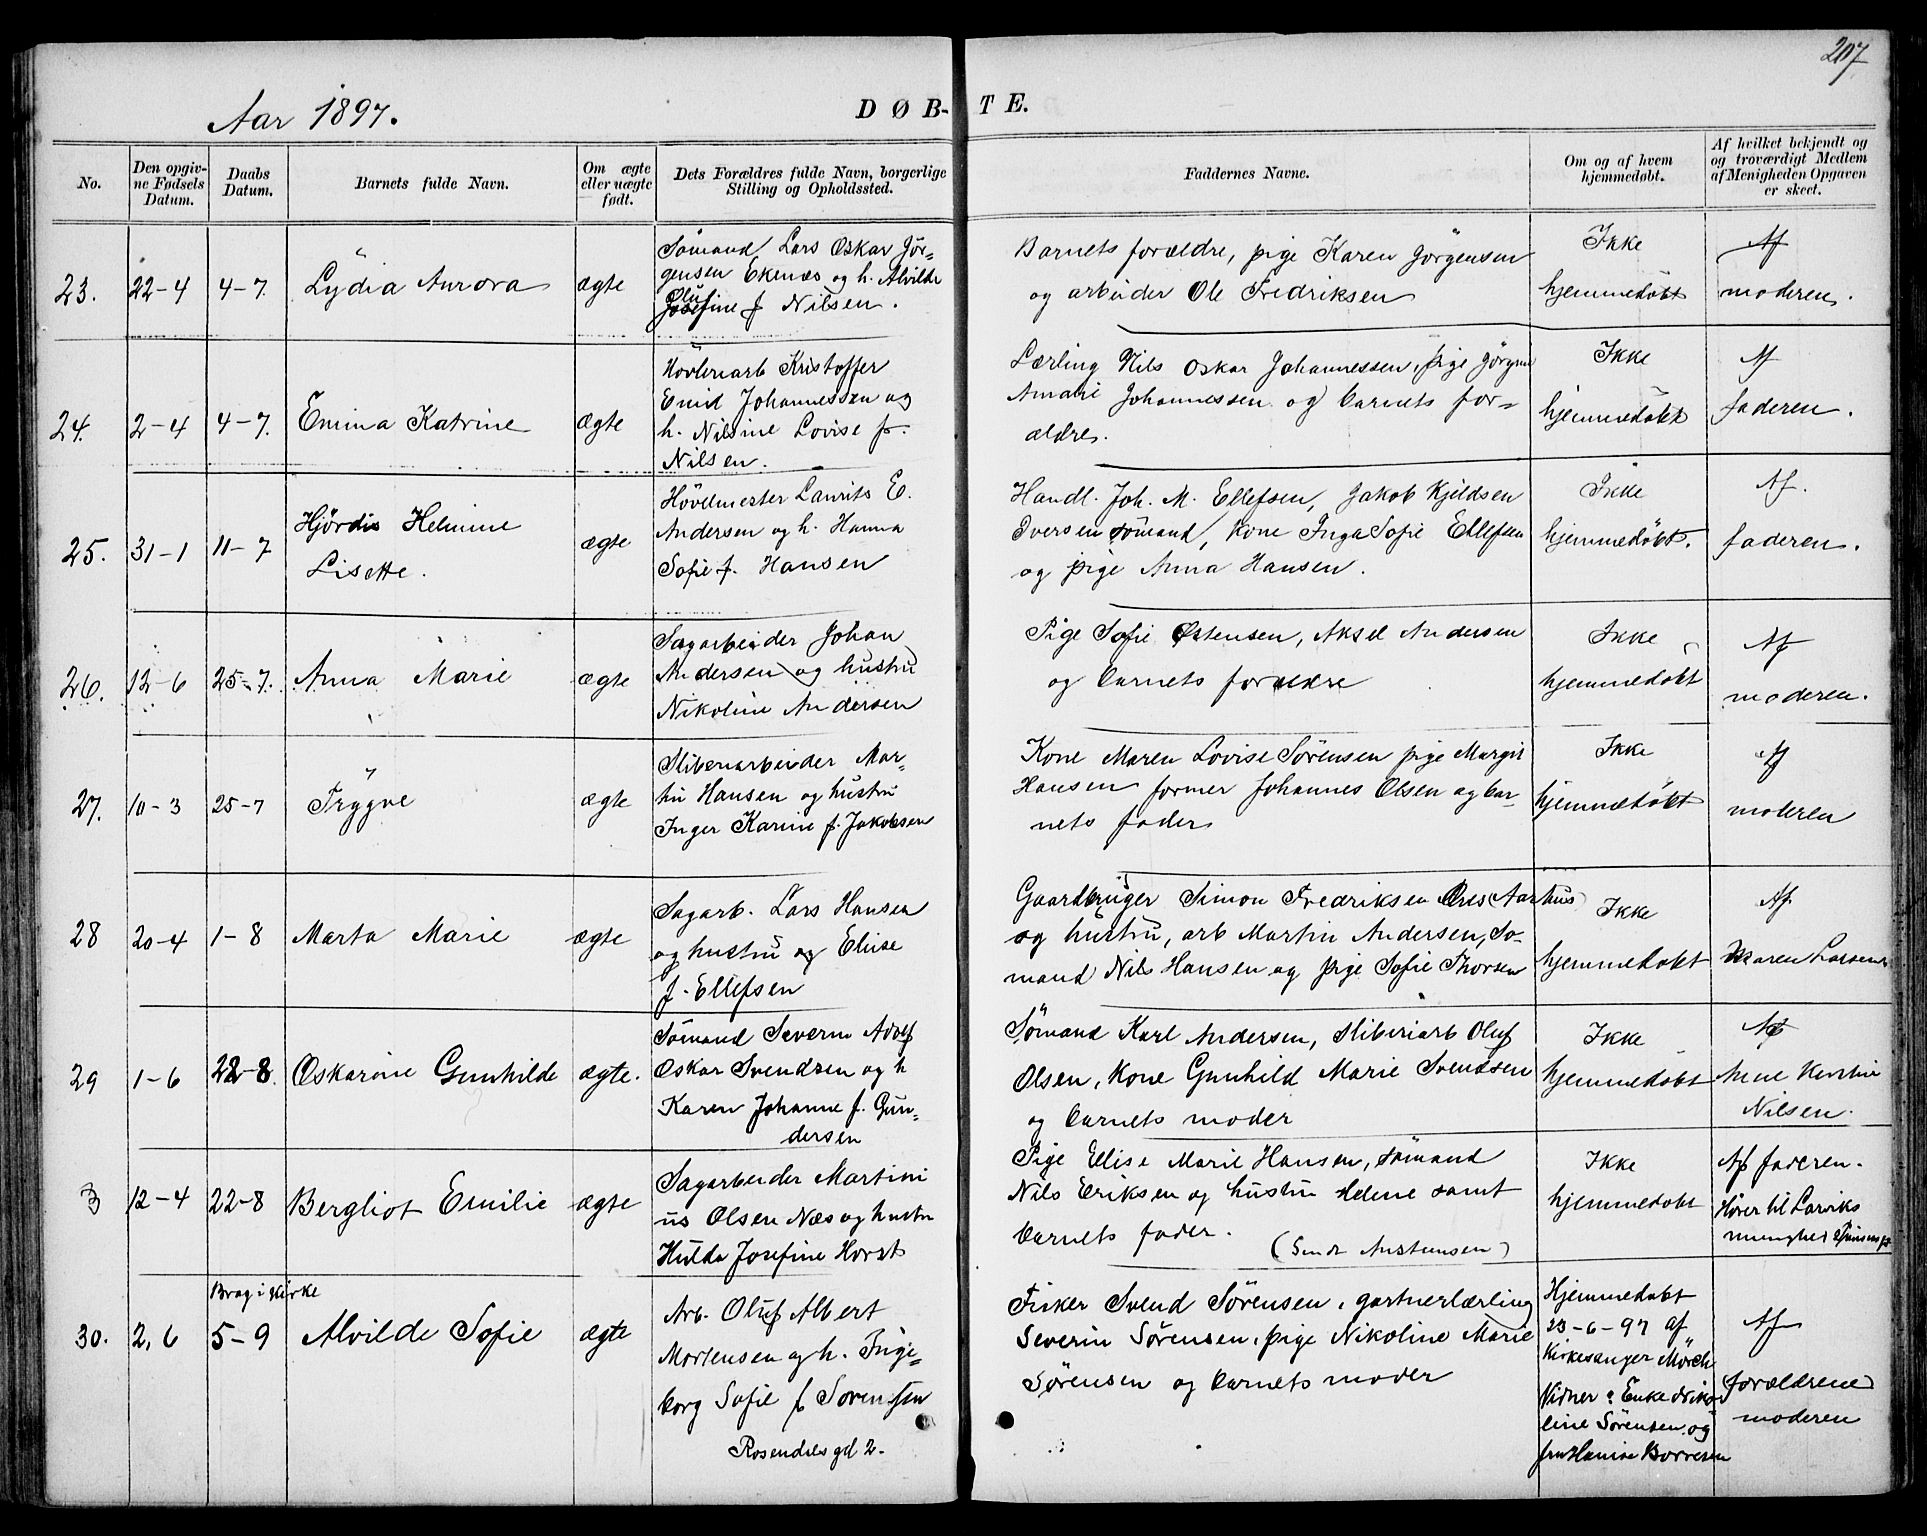 207
Aar 1897.
DØB-TE.
No.
Den opgivne Fødsels Datum.
Daabs Datum.
Barnets fulde Navn.
Om ægte eller uægte født.
Dets Forældres fulde Navn, borgerlige Stilling og Opholdssted.
Faddernes Navne.
Om og af hvem hjemmedøbt.
Af hvilket bekjendt og og troværdigt Medlem af Menigheden Opgaven er skeet.
23.
22-4
4-7
Lydia Aurora
ægte
Sømand Lars Oskar Jör-
gensen Ekenæs og h. Alvilde
Oluf
Josefine f Nilsen.
Barnets forældre, pige Karen Jörgensen
og arbeider Ole Fredriksen
Ikke
hjemmedøbt
Af
moderen.
24.
2-4
4-7.
Emma Katrine
ægte
Hövleriarb Kristoffer
Emil Johannessen og
h. Nilsine Lovise f.
Nilsen.
Lærling Nils Oskar Johannessen, pige Jörgine
Amalie Johannessen og barnets for-
ældre.
Ikke
hjemmedøbt
Af
faderen.
25.
31-1
11-7
Hjördis Helmine
Lisette.
ægte
Hövelmester Laurits E.
Andersen og h. Hanna
Sofie f. Hansen
Handl. Joh. M. Ellefsen, Jakob Kjeldsen
Iversen sömand, Kone Inga Sofie Ellefsen
og pige Anna Hansen.
Ikke
hjemmedöbt.
Af.
faderen.
26.
12-6
25-7.
Anna Marie
ægte
Sagarbeider Johan
Andersen og hustru
Nikoline Andersen
Pige Sofie Østensen, Aksel Andersen
og barnets forældre
Ikke
hjemmedøbt
Af
moderen.
27.
10-3
25-7
Trygve
ægte
Sliberiarbeider Mar-
tin Hansen og hustru
Inger Karine f. Jakobsen
Kone Maren Lovise Sörensen pige Margit
Hansen former Johannes Olsen og bar-
nets fader
Ikke
hjemmedøbt
Af
moderen
28
20-4
1-8
Marta Marie
ægte
Sagarb. Lars Hansen
og hustru og Elise
f. Ellefsen
Gaardbruger Simon Fredriksen Øres (Aarhus)
og hustru, arb Martin Andersen, Sö-
mand Nils Hansen og pige Sofie Thorsen
Ikke
hjemmedøbt
Af
Maren Larsen
29
1-6
22-8.
Oskarine Gunhilde
ægte.
Sömand Severin Adolf
Oskar Svendsen og h
Karen Johanne f. Gun-
dersen
Sömand Karl Andersen, Sliberiarb Oluf
Olsen, Kone Gunhild Marie Svendsen
og barnets moder
Ikke
hjemmedøbt
Af
Anne Kirstine
Nilsen.
3
12-4
22-8
Bergliot Emilie
ægte
Sagarbeider Martini
us Olsen Næs og hustru
Hulda Josefine Horst
Pige Elise Marie Hansen, sömand
Nils Eriksen og hustru Helene samt
barnets fader.
Ikke
hjemmedøbt
Af faderen.
Hörer til Larviks
menighed
30.
2,6
Brag i Kirke
5-9
Alvilde Sofie
ægte
Arb. Oluf Albert
Mortensen og h. Inge-
borg Sofie f Sorensen
2.
Fisker Svend Sörensen, gartnerlærling
Severin Sörensen, pige Nikoline Marie
Sörensen og barnets moder
Hjemmedøbt
23-6-97 af
Kirkesanger Mörch
Vidner: Enke Niko-
line Sörensen og
fru Hanna Borresen
Af
forældrene
moderen